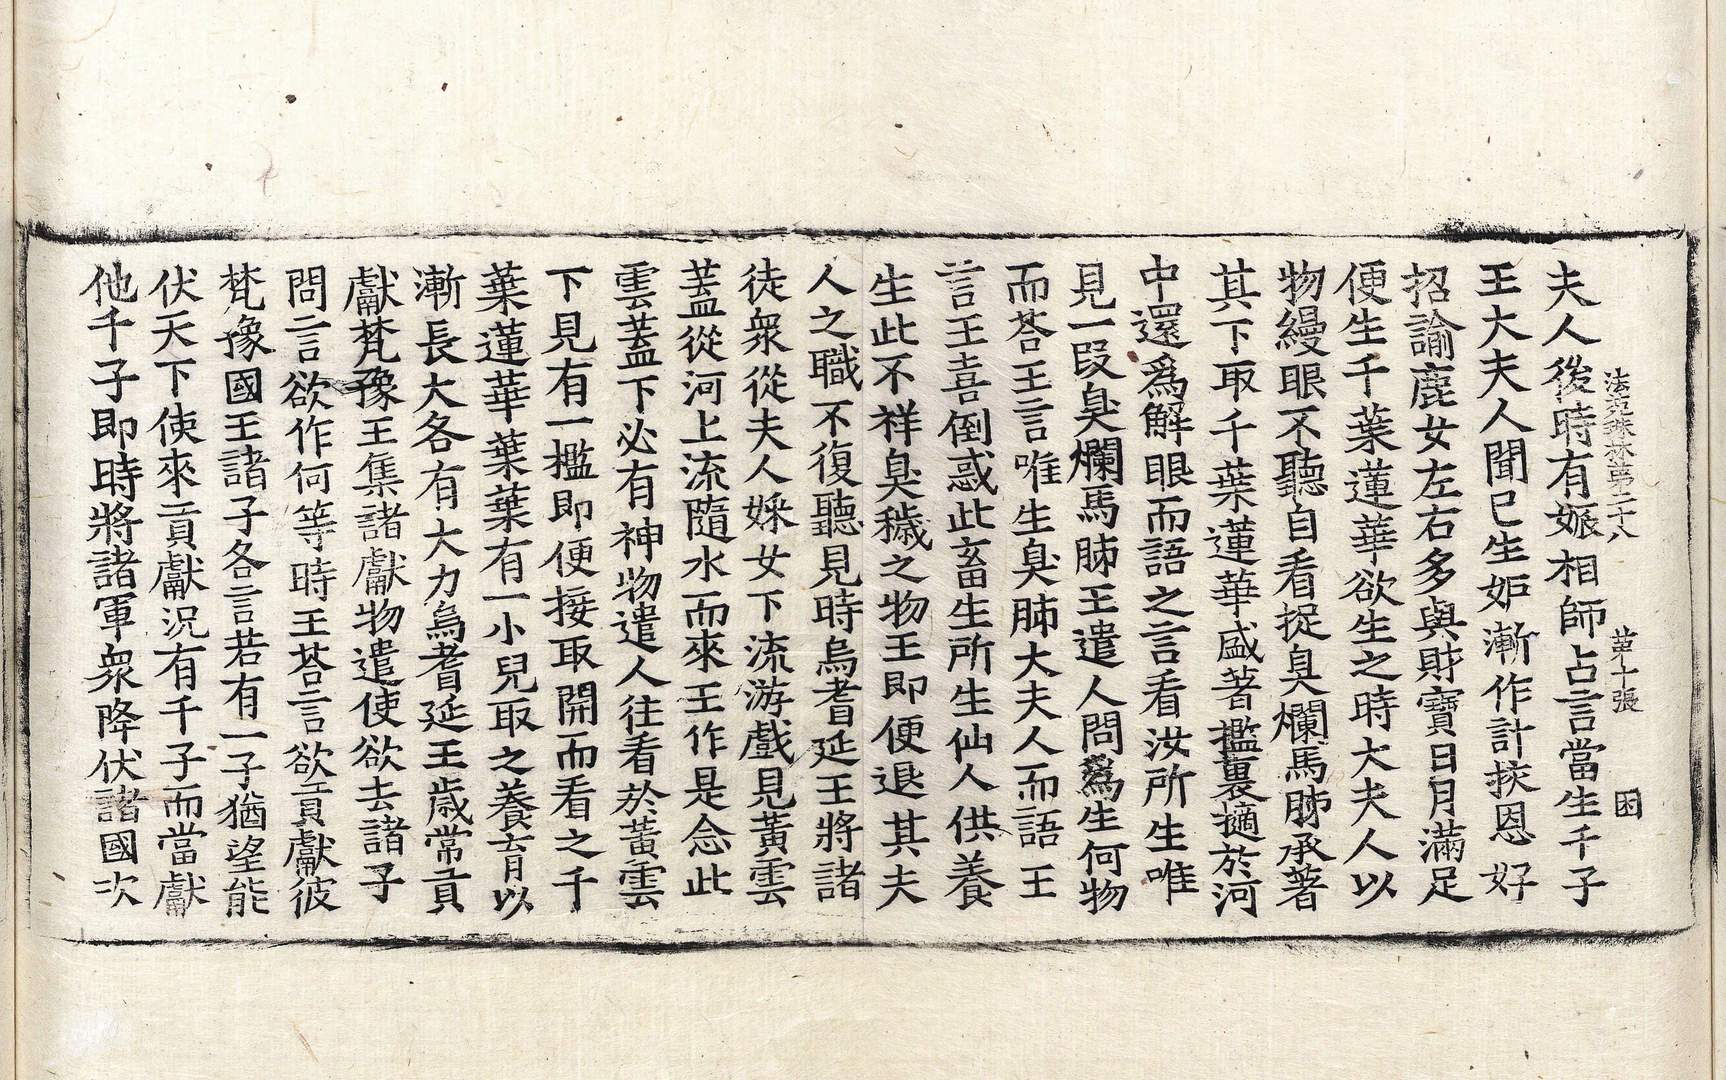 法苑珠林第二十八　第十張　困
夫人後時有娠相師占言當生千子
王大夫人聞已生妬漸作計挾恩好
招諭鹿女左右多與財寶日月滿足
便生千葉蓮華欲生之時大夫人以
物縵眼不聽自看捉臭爛馬肺承著
其下取千葉蓮華盛著檻裏擿於河
中還爲解眼而語之言看汝所生唯
見一段臭爛馬肺王遣人問爲生何物
而荅王言唯生臭肺大夫人而語王
言王喜倒惑此畜生所生仙人供養
生此不祥臭穢之物王即便退其夫
人之職不復聽見時烏耆延王將諸
徒衆從夫人婇女下流游戲見黃雲
蓋從河上流隨水而來王作是念此
雲蓋下必有神物遣人往看於黃雲
下見有一檻即便接取開而看之千
葉蓮華葉葉有一小兒取之養育以
漸長大各有大力烏耆延王歲常貢
獻梵豫王集諸獻物遣使欲去諸子
問言欲作何等時王荅言欲貢獻彼
梵豫國王諸子各言若有一子猶望能
伏天下使來貢獻況有千子而當獻
他千子即時將諸軍衆降伏諸國次